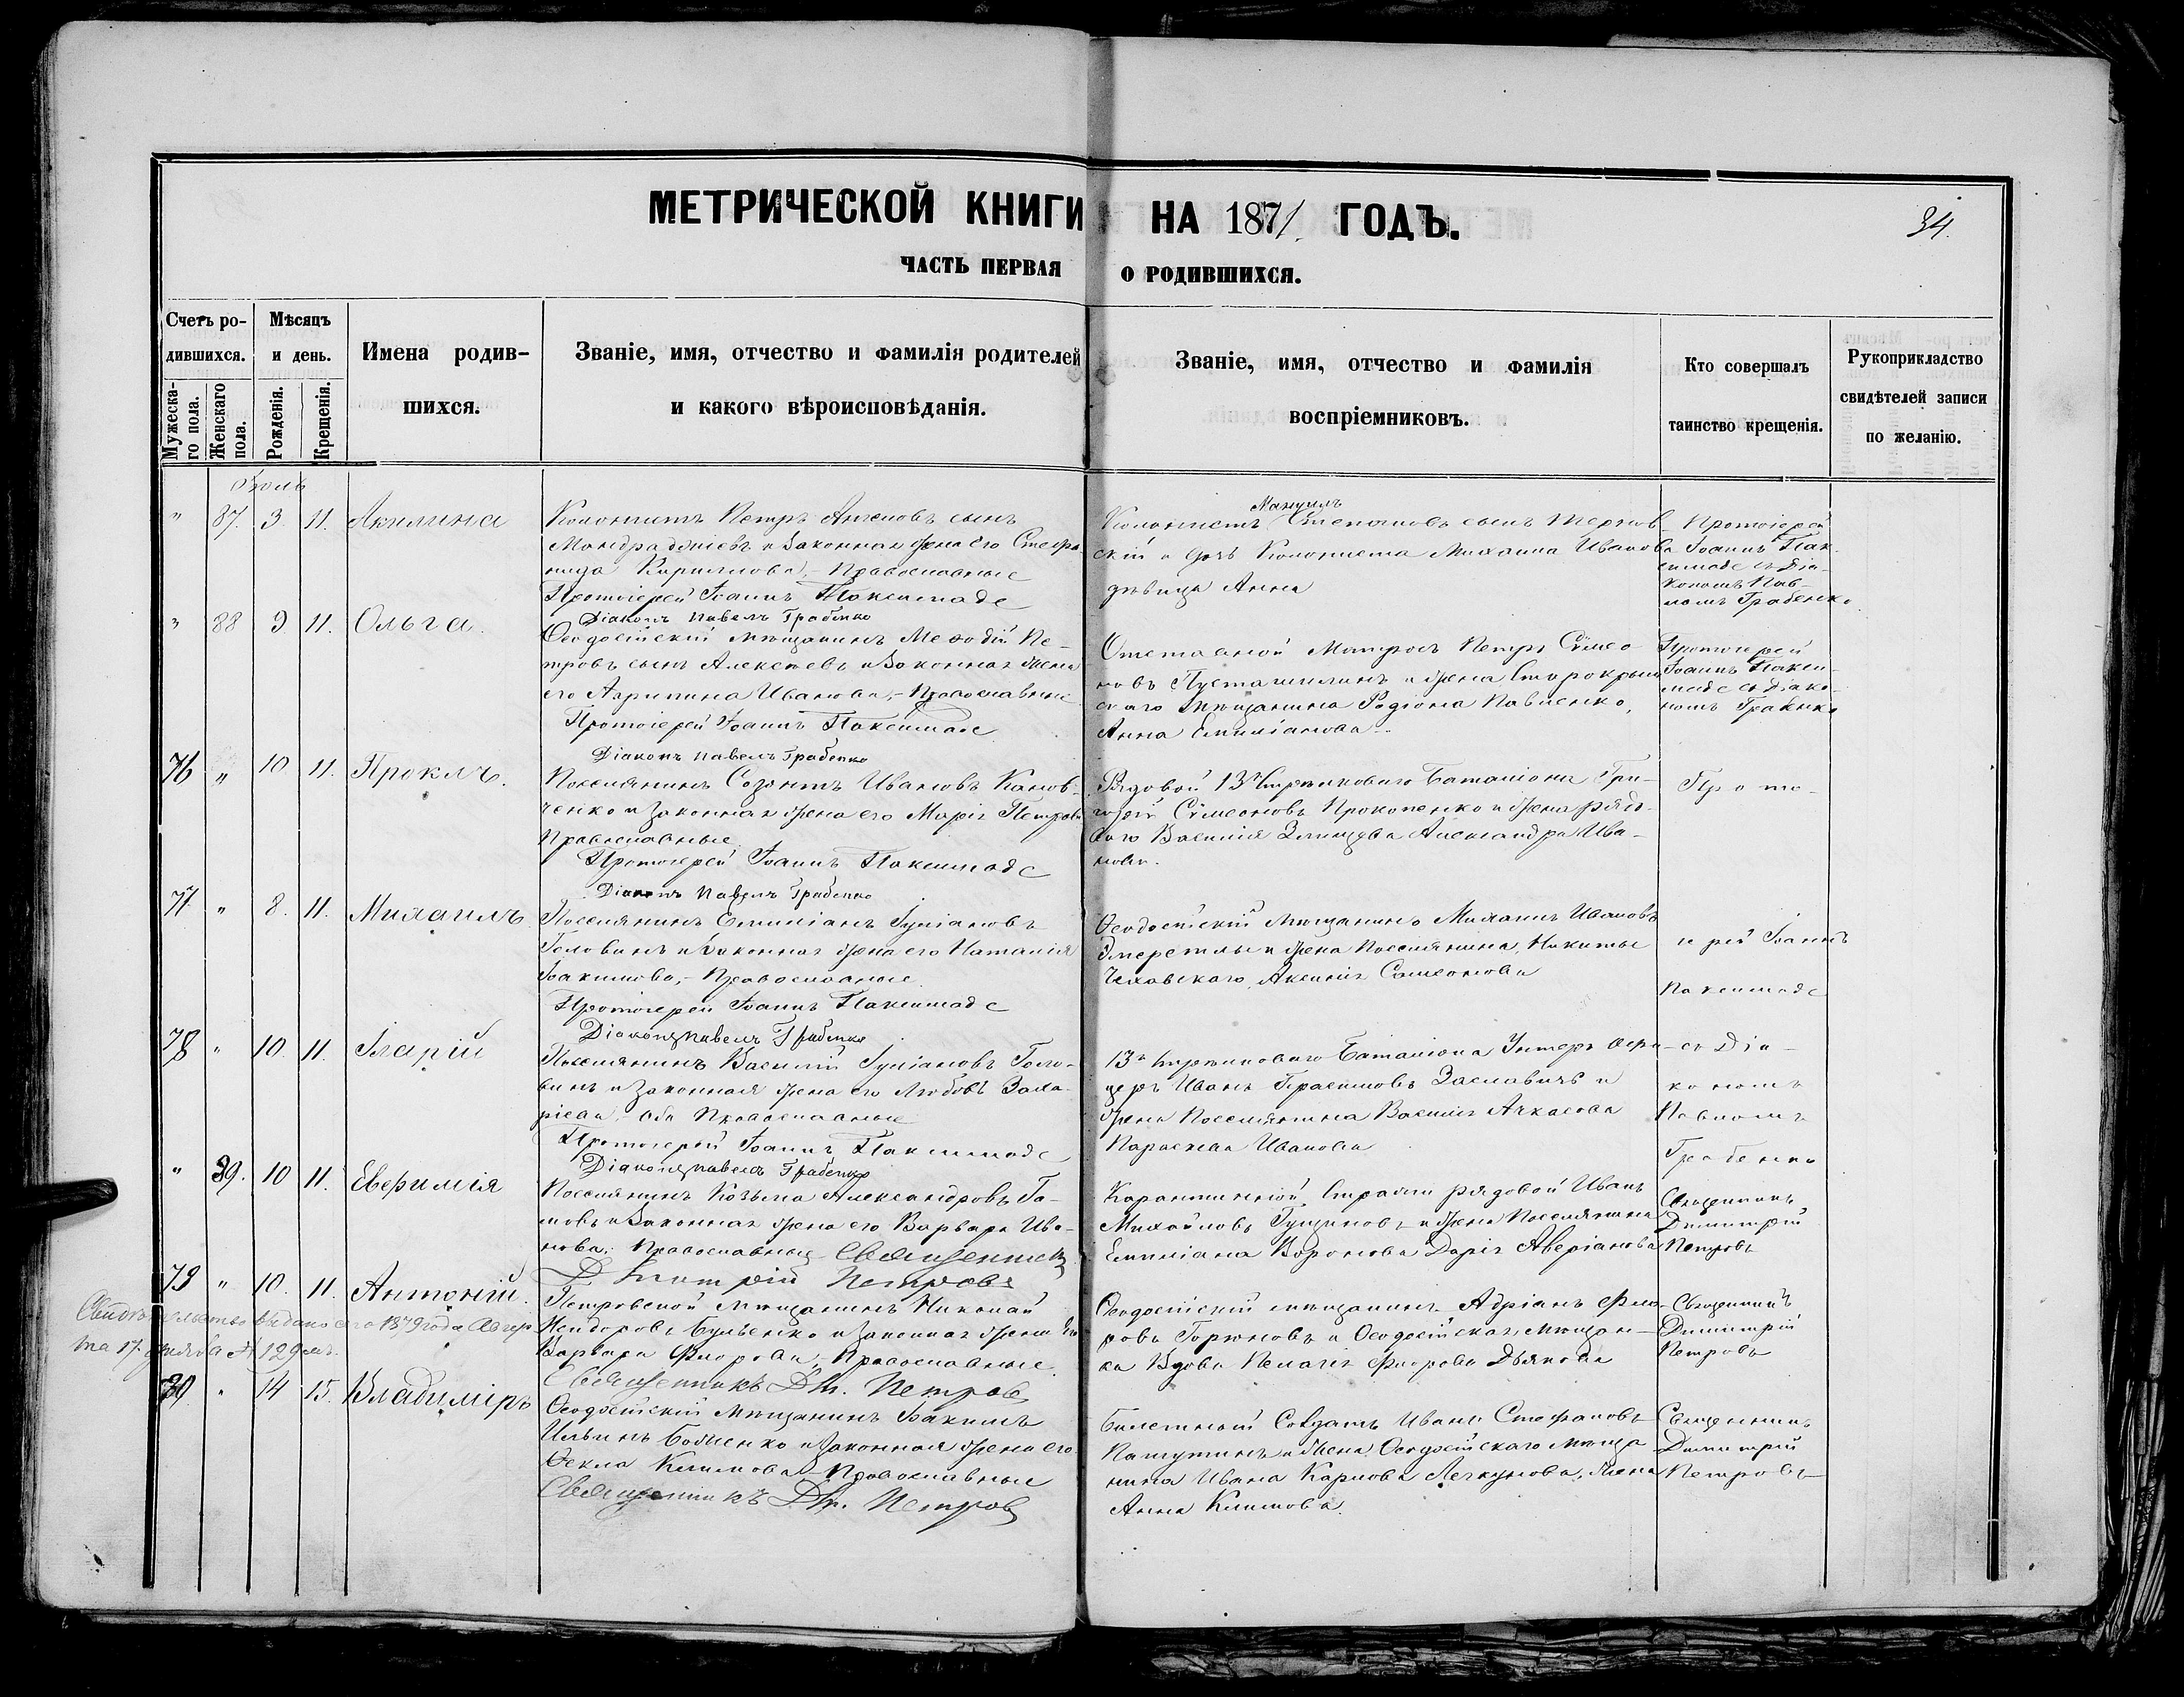 МЕТРИЧЕСКОЙ КНИГИ НА 1871. ГОДЪ.
34.
ЧАСТЬ ПЕРВАЯ О РОДИВШИХСЯ.
Счетъ родившихся.
Мужескаго пола.
Женскаго пола.
Мѣсяцъ и день.
Рожденія.
Крещенія.
Имена родившихся.
Званіе, имя, отчество и фамилія родителей
и какого вѣроисповѣданія.
Званіе, имя, отчество и фамилія
воспріемниковъ.
Кто совершалъ
таинство крещенія.
Рукоприкладство
свидѣтелей записи
по желанію.
" 87. 3. 11. Акилина
Колонистъ Петръ Ангеловъ сынъ
и законная жена его Стефа-
нида Кириллова, - Православные
Протоіерей Іоаннъ Паксимаде
Діаконъ Павелъ Грабенко
Мануилъ
Колонистъ Степановъ сынъ
и дочь Колониста Михаила Иванова
дѣвица Анна
Протоіерей
Іоаннъ Пак-
симаде съ Діа-
кономъ Пав-
ломъ Грабенко
" 88 9 11. Ольга.
Ѳеодосійскій мѣщанинъ Меѳодій Пе-
тровъ сынъ Алексѣевъ и законная жена
его Агрипина Иванова, - Православные
Протоіерей Іоаннъ Паксимаде
Діаконъ Павелъ Грабенко
Отставной Матросъ Петръ Симео-
новъ и жена
скаго мѣщанина Родіона Павленко,
Анна Емиліанова.
Протоіерей
Іоаннъ Пакси-
маде съ Діако-
номъ Грабенко
76 " 10 11. Проклъ.
Поселянинъ Созонтъ Ивановъ
и законная жена его Марія Петрова
Православные
Протоіерей Іоаннъ Паксимаде
Діаконъ Павелъ Грабенко
Рядовой 13го Стрѣлковаго Баталіона Гри-
горій Симеоновъ Прокопенко и жена рядо-
ваго Василія Александра Ива-
нова.
Прото-
77 " 8. 11. Михаилъ
Поселянинъ Емиліанъ Іуліановъ
Головинъ и законная жена его Наталія
Іоакимова, - Православные
Протоіерей Іоаннъ Паксимаде
Діаконъ Павелъ Грабенко
Ѳеодосійскій мѣщанинъ Михаилъ Ивановъ
и жена Поселянина, Никиты
Чеховскаго, Аксинія Самсонова
іерей Іоаннъ
Паксимаде
78 " 10. 11. Іларій
Поселянинъ Василій Іуліановъ Голо-
винъ и законная жена его Любовь Заха-
ріева, Оба Православные
Протоіерей Іоаннъ Паксимаде
Діаконъ Павелъ Грабенко
13го Стрѣлковаго Баталіона Унтеръ Офи-
церъ Иванъ Герасимовъ Заславичъ и
жена Поселянина Василія Ачкасова
Параскева Иванова
съ Діа-
кономъ
Павломъ
Грабенко
" 89. 10 11. Евфимія
Поселянинъ Козьма Александровъ
и законная жена его Варвара Ива-
нова, Православные Священникъ
Димитрій Петровъ
Карантинной Стражи рядовой Иванъ
Михайловъ и жена Поселянина
Емиліана Воронова Дарія Аверіанова
Священникъ
Димитрій
Петровъ
79 " 10. 11. Антоній.
Свидѣтельство выдано 1879 года
17 № 129
Петровской мѣщанинъ Николай
и законная жена его
Варвара Флорова, Православные
Священникъ Дм. Петровъ
Ѳеодосійскій мѣщанинъ Адріанъ Фло-
ровъ Горюновъ и Ѳеодосійская мѣщан-
ка Вдова Пелагія Флорова Дьякова
Священникъ
Димитрій
Петровъ
80 " 14 15. Владиміръ
Ѳеодосійскій мѣщанинъ Іоакимъ
Ильинъ и законная жена его
Ѳекла Климова - Православные
Священникъ Дм. Петровъ
Билетный Солдатъ Иванъ Стефановъ
и жена Ѳеодосійскаго мѣща-
нина Ивана Карпова жена
Анна Климова.
Священникъ
Димитрій
Петровъ